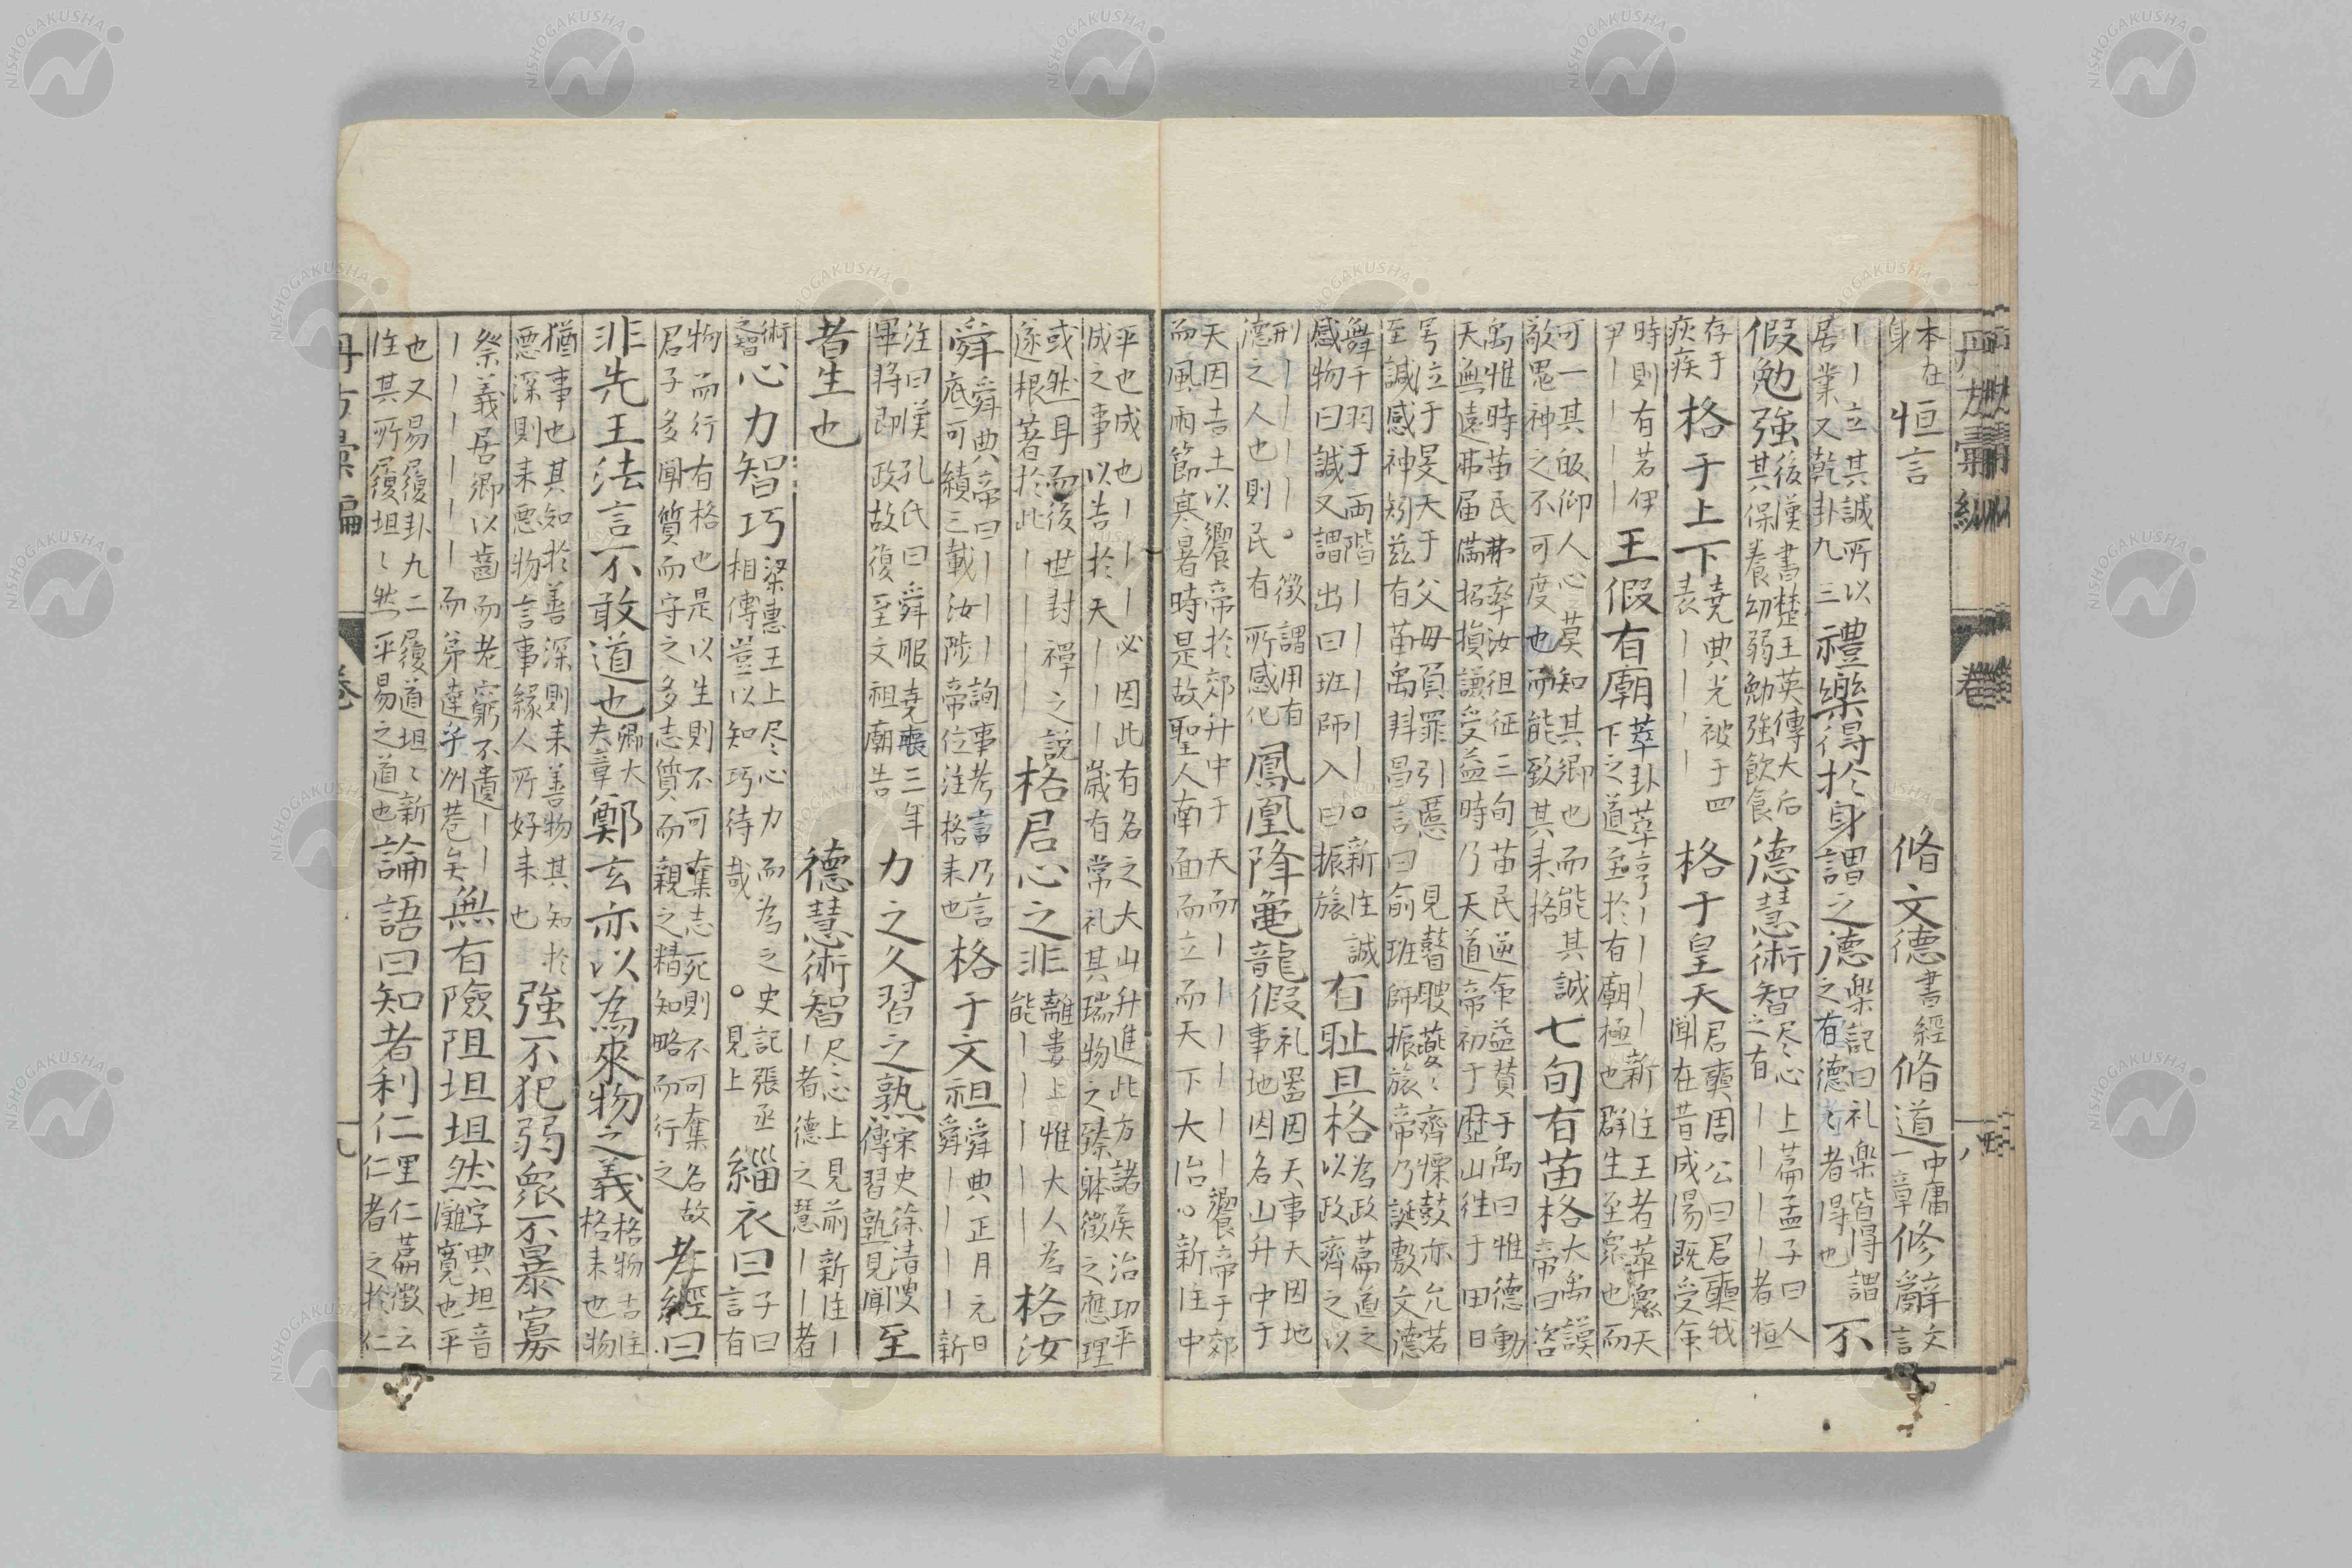 本在
身
恒言
脩文德
書經
脩道
中庸
一章
修辭
文
言
丨丨立其誠所以
居業又乾卦九三
禮樂得於身謂之德
樂記曰礼楽皆得謂
之有德德者得也
不
假勉強
後漢書楚王英傳大后
其保養幼弱勉強飲食
德慧術智
尽心上篇孟子曰人
之有丨丨丨丨者恒
存于
疢疾
格于上下
堯典光被于四
表丨丨丨丨
格于皇天
君奭周公曰君奭我
聞在昔成湯既受命
時則有若伊
尹丨丨丨丨
王假有廟
萃卦萃亨丨丨丨丨新注王者萃衆天
下之道至於有廟極也群生至衆也而
可一其皈仰人心莫知其郷也而能其誠
敬鬼神之不可度也而能致其来格
七旬有苗格
大禹謨
帝曰咨
禹惟時苗民弗率汝徂征三旬苗民逆命益賛于禹曰惟德動
天無遠弗届満招損謙受益時乃天道帝初于歴山往于田日
号泣于旻天于父母負罪引慝見瞽瞍夔〻齊慄鼓亦允若
至諴感神矧兹有苗禹拜昌言曰俞班師振旅帝乃誕敷文德
舞干羽于両階丨丨丨丨○新注諴
感物曰諴又謂出曰班師入曰振旅
有耻且格
為政篇道之
以政齊之以
刑丨丨丨丨○徴謂用有
德之人也則民有所感化
鳳凰降龜龍假
礼噐因天事天因地
事地因名山升中于
天因吉土以饗帝於郊升中于天而丨丨丨丨丨丨饗帝于郊
而風雨節寒暑時是故聖人南面而立而天下大治○新注中
平也成也丨丨丨必因此有名之大山升進此方諸侯治功平
成之事以告於天丨丨丨歳有常礼其瑞物之臻躰徴之應理
或然耳而後世封禪之説
遂根著於此丨丨丨丨
格君心之非
離婁上惟大人為
能丨丨丨丨丨
格汝
舜
舜典帝曰丨丨丨詢事考言乃言
底可績三載汝陟帝位注格来也
格于文祖
舜典正月元日
舜丨丨丨丨新
注曰漢孔氏曰舜服堯喪三年
畢将即政故復至文祖廟告
力之久習之熟
宋史徐清叟
傳習熟見聞
至
者生也
德慧術智
尽心上見前新注丨
丨者德之慧丨丨者
術
之智
心力智巧
梁惠王上尽心力而為之史記張丞
相傳豈以知巧待哉○見上
緇衣曰
子曰
言有
物而行有格也是以生則不可奪志死則不可奪名故
君子多聞質而守之多志質而親之精知略而行之
孝經曰
非先王法言不敢道也
卿大
夫章
鄭玄亦以為來物之義
格物古注
格来也物
猶事也其知於善深則来善物其知於
悪深則来悪物言事縁人所好来也
強不犯弱衆不暴寡
祭義居郷以齒而老窮不遺丨丨
丨丨丨丨丨丨而弟達乎州巷矣
無有險阻坦坦然
字典坦音
灘寛也平
也又易履卦九二履道坦〻新
注其所履坦〻然平易之道也
論語曰知者利仁
里仁篇徴云
仁者之於仁